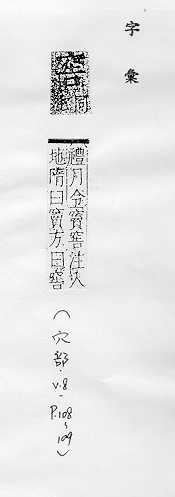 字彙
禮月令竇窖注入
地隋曰竇方曰窖
(穴部. v.8 - P.108~109)